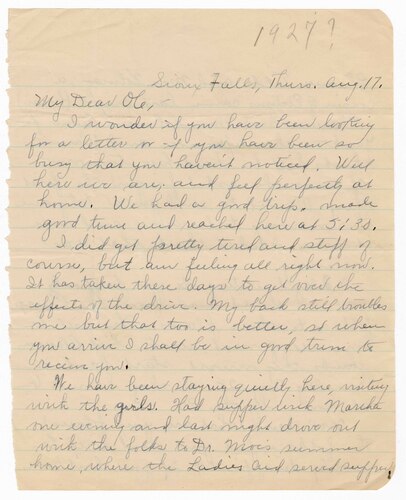 1927?
Sioux Falls, Thurs. Aug. 17.
My Dear Ole,-
I wonder if you have been looking
for a letter or if you have been so
busy that you haven't noticed. Well
here we are, and feel perfectly at
home. We had a good trip, made
good time and reached here at 5:30.
I did get pretty tired and stiff of
course, but am feeling all right now.
It has taken these days to get over the
effects of the drive. My back still troubles
me but that too is better, so when
you arrive I shall be in good trim to
receive you.
We have been staying quietly here, visiting
with the girls. Had supper with Martha
one evening and last night drove out
with the folks to Dr. Mois summer
home, where the Ladies Aid served supper